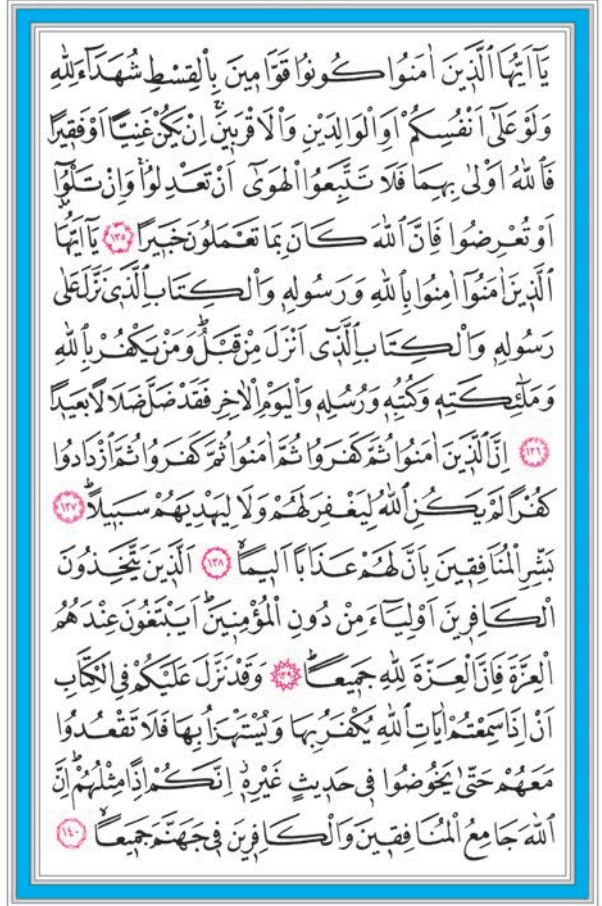 يَٓا اَيُّهَا الَّذ۪ينَ اٰمَنُوا كُونُوا قَوَّام۪ينَ بِالْقِسْطِ شُهَدَٓاءَ لِلّٰهِ
وَلَوْ عَلٰٓى اَنْفُسِكُمْ اَوِ الْوَالِدَيْنِ وَالْاَقْرَب۪ينَۚ اِنْ يَكُنْ غَنِيًّا اَوْ فَق۪يرًا
فَاللّٰهُ اَوْلٰى بِهِمَا فَلَا تَتَّبِعُوا الْهَوٰٓى اَنْ تَعْدِلُواۚ وَاِنْ تَلْوُٓۥا
اَوْ تُعْرِضُوا فَاِنَّ اللّٰهَ كَانَ بِمَا تَعْمَلُونَ خَب۪يرًا ﴿١٣٥﴾ يَٓا اَيُّهَا
الَّذ۪ينَ اٰمَنُٓوا اٰمِنُوا بِاللّٰهِ وَرَسُولِه۪ وَالْكِتَابِ الَّذ۪ي نَزَّلَ عَلٰى
رَسُولِه۪ وَالْكِتَابِ الَّذ۪ٓي اَنْزَلَ مِنْ قَبْلُۜ وَمَنْ يَكْفُرْ بِاللّٰهِ
وَمَلٰٓئِكَتِه۪ وَكُتُبِه۪ وَرُسُلِه۪ وَالْيَوْمِ الْاٰخِرِ فَقَدْ ضَلَّ ضَلَالًا بَع۪يدًا
﴿١٣٦﴾ اِنَّ الَّذ۪ينَ اٰمَنُوا ثُمَّ كَفَرُوا ثُمَّ اٰمَنُوا ثُمَّ كَفَرُوا ثُمَّ ازْدَادُوا
كُفْرًا لَمْ يَكُنِ اللّٰهُ لِيَغْفِرَ لَهُمْ وَلَا لِيَهْدِيَهُمْ سَب۪يلًاۜ ﴿١٣٧﴾
بَشِّرِ الْمُنَافِق۪ينَ بِاَنَّ لَهُمْ عَذَابًا اَل۪يمًاۙ ﴿١٣٨﴾ اَلَّذ۪ينَ يَتَّخِذُونَ
الْكَافِر۪ينَ اَوْلِيَٓاءَ مِنْ دُونِ الْمُؤْمِن۪ينَۜ اَيَبْتَغُونَ عِنْدَهُمُ
الْعِزَّةَ فَاِنَّ الْعِزَّةَ لِلّٰهِ جَم۪يعًاۜ ﴿١٣٩﴾ وَقَدْ نَزَّلَ عَلَيْكُمْ فِي الْكِتَابِ
اَنْ اِذَا سَمِعْتُمْ اٰيَاتِ اللّٰهِ يُكْفَرُ بِهَا وَيُسْتَهْزَاُ بِهَا فَلَا تَقْعُدُوا
مَعَهُمْ حَتّٰى يَخُوضُوا ف۪ي حَد۪يثٍ غَيْرِه۪ۘ اِنَّكُمْ اِذًا مِثْلُهُمْۜ اِنَّ
اللّٰهَ جَامِعُ الْمُنَافِق۪ينَ وَالْكَافِر۪ينَ ف۪ي جَهَنَّمَ جَم۪يعًاۙ ﴿١٤٠﴾